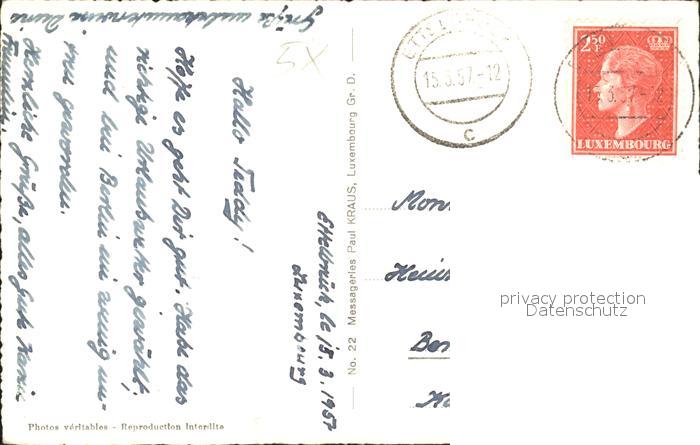 Ettelbrück, le 15.3.1957
Luxembourg
Hallo Teddy!
Hoffe es geht Dir gut. Habe das
richtige Urlaubswetter gewählt,
und bei Berlin ein wenig un-
treu geworden.
Herzliche Grüße, alles Gute
Grüße unbekannterweise Deine
5X
No. 22 Messageries Paul KRAUS, Luxembourg Gr. D.
Photos véritables - Reproduction interdite
15.3.57-12
C
2.50
F
LUXEMBOURG
Mon
Hein
Ber
privacy protection
Datenschutz